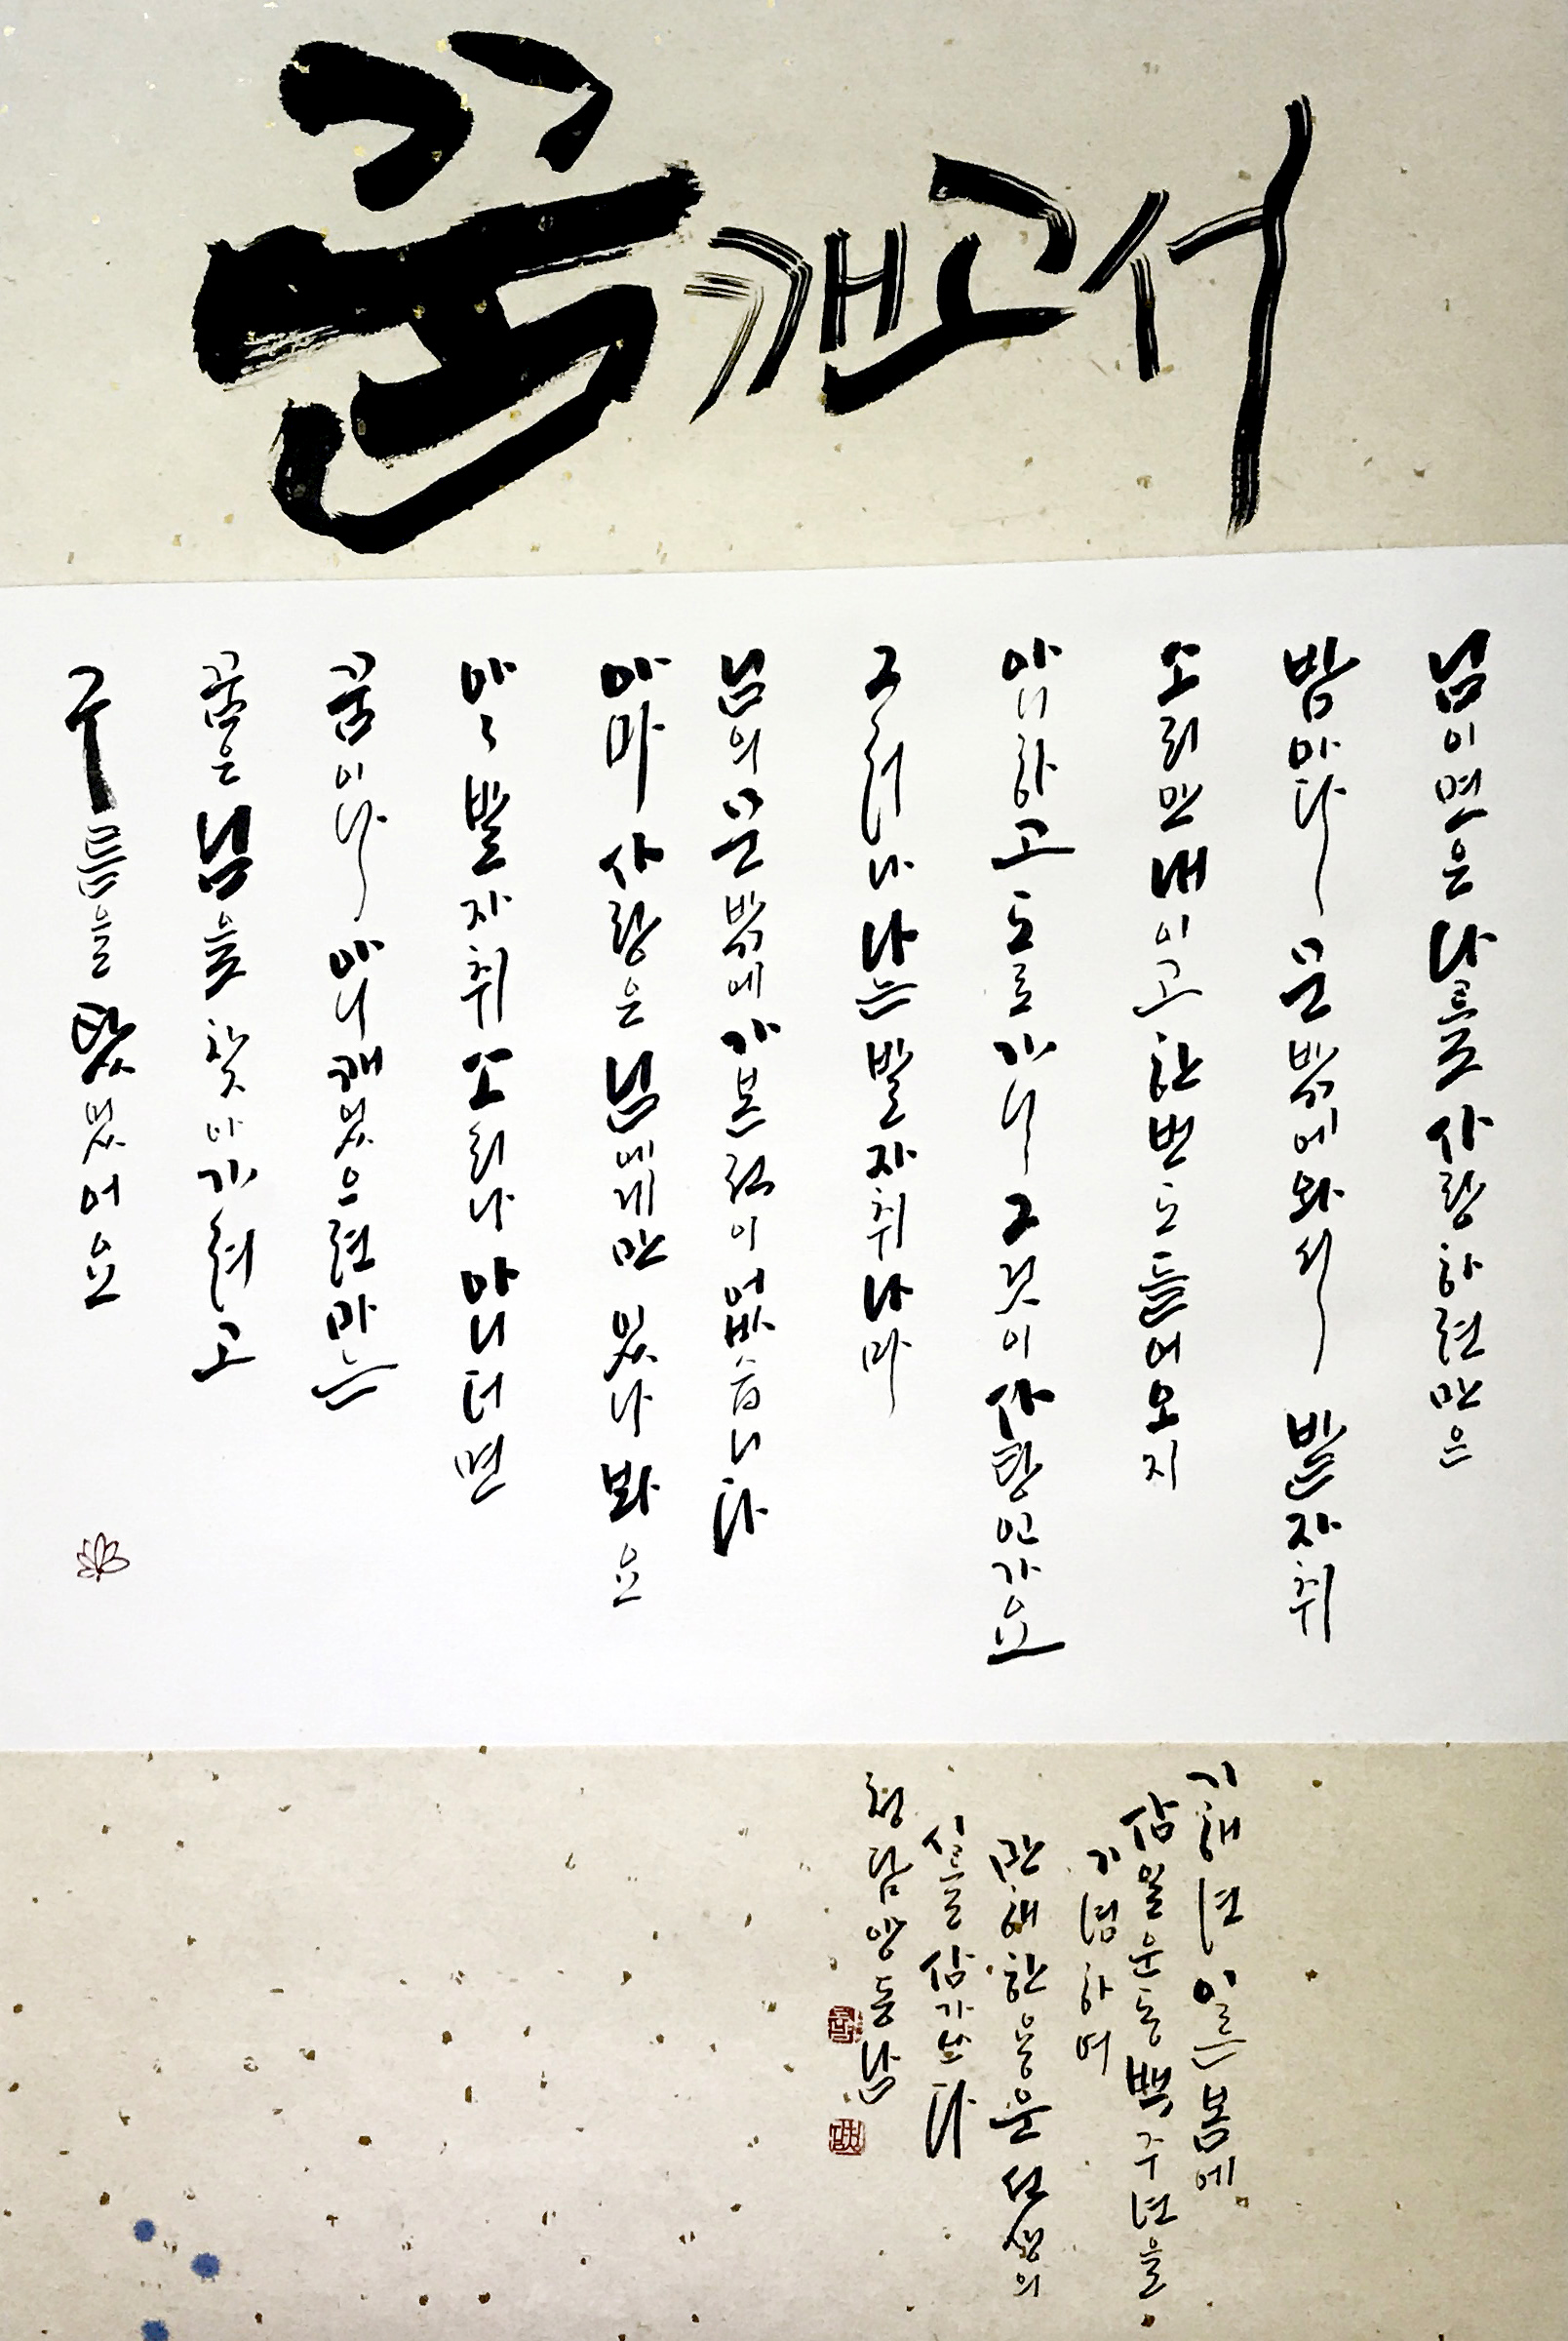 꿈 깨고서
님이면은 나를 사랑하련만은
밤마다 문밖에 와서 발자취
소리만 내이고 한번도 들어오지
아니하고 도로가니 그것이 사랑인가요
그러나 나는 발자취나마
님의 문밖에 가본적이 없습니다
아마 사랑은 님에게만 있나봐요
아〻 발자취 소리나 아니더면
꿈이나 아니 깨었으련마는
꿈은 님을 찾아가려고
구름을 탔었어요
기해년 이른 봄에
삼월운동 백주년을
기념하며
만해 한용운 선생의
시를 삼가 쓰다
청담 양동남